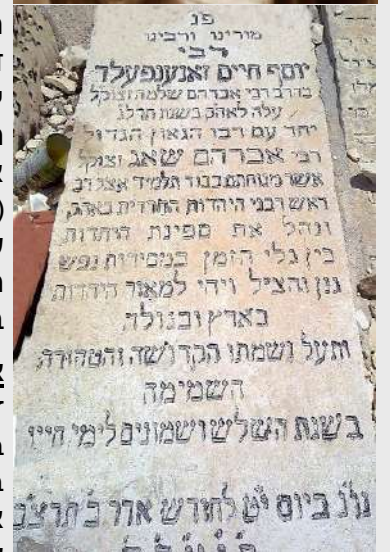 פנ
מורינו ורבינו
רבי
יוסף חיים זאנענפעלד
בהרב רבי אברהם שלמה זצוקל
עלה לאהק בשנת תרלג
יחד עם רבו הגאון הגדול
רבי אברהם שאג זצוקל
אשר מנוחתם כבוד תלמיד אצל רב
ראש רבני היהדות החרדית באהק
ונהל את ספינת היהדות
בין גלי הזמן במסירות נפש
גנן והציל ויהי למאור היהדות
בארץ ובגולה
ותעל נשמתו הקדושה והטהורה
השמימה
בשנת השלש ושמונים לימי חייו
נ״נ ביום י״ט לחודש אדר ב׳ תרצ״ב
ת׳נ׳צ׳ב׳ה׳